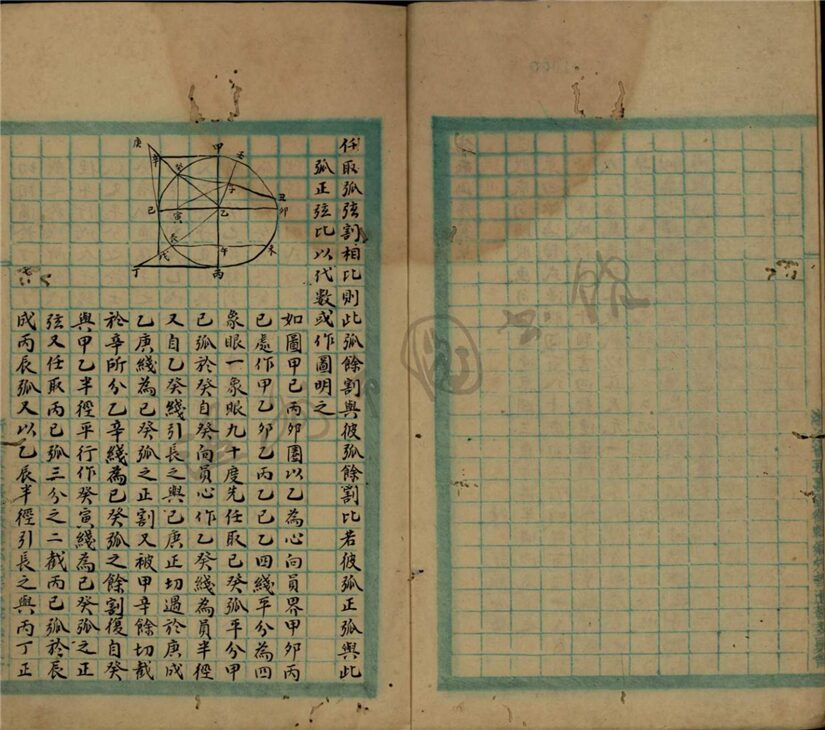 任取弧弦割相比則此弧餘割與彼弧餘割比若彼弧正弧與此
弧正弦比以代數或作圖明之
如圖甲己丙卯圜以乙為心向員界甲卯丙
己處作甲乙卯乙丙乙己乙四綫平分為四
象眼一象眼九十度先任取己癸弧平分甲
己弧於癸自癸向員心作乙癸綫為員半徑
又自乙癸綫引長之與己庚正切遇於庚成
乙庚綫為己癸弧之正割又被甲辛餘切截
於辛所分乙辛綫為己癸弧之餘割復自癸
與甲乙半徑平行作癸寅綫為己癸弧之正
弦又任取丙己弧三分之二截丙己弧於辰
成丙辰弧又以乙辰半徑引長之與丙丁正
庚
辛
癸
甲
壬
子
丑
卯
己
寅
乙
辰
戊
午
未
丁
丙